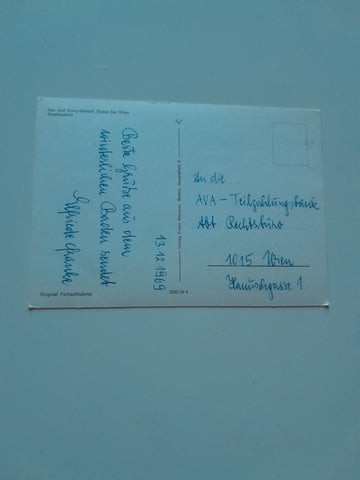 Kur- und Kongreßstadt Baden bei Wien
Stadtansicht
13.12.1969
Beste Grüße aus dem
winterlichen Baden sendet
Elfriede
Original Farbaufnahme
Verlag Erwin Baden, Hauptplatz 2
An die
AVA - Teilzahlungsbank
Abt. Rechtsbüro
1015 Wien
Hanuschgasse 1